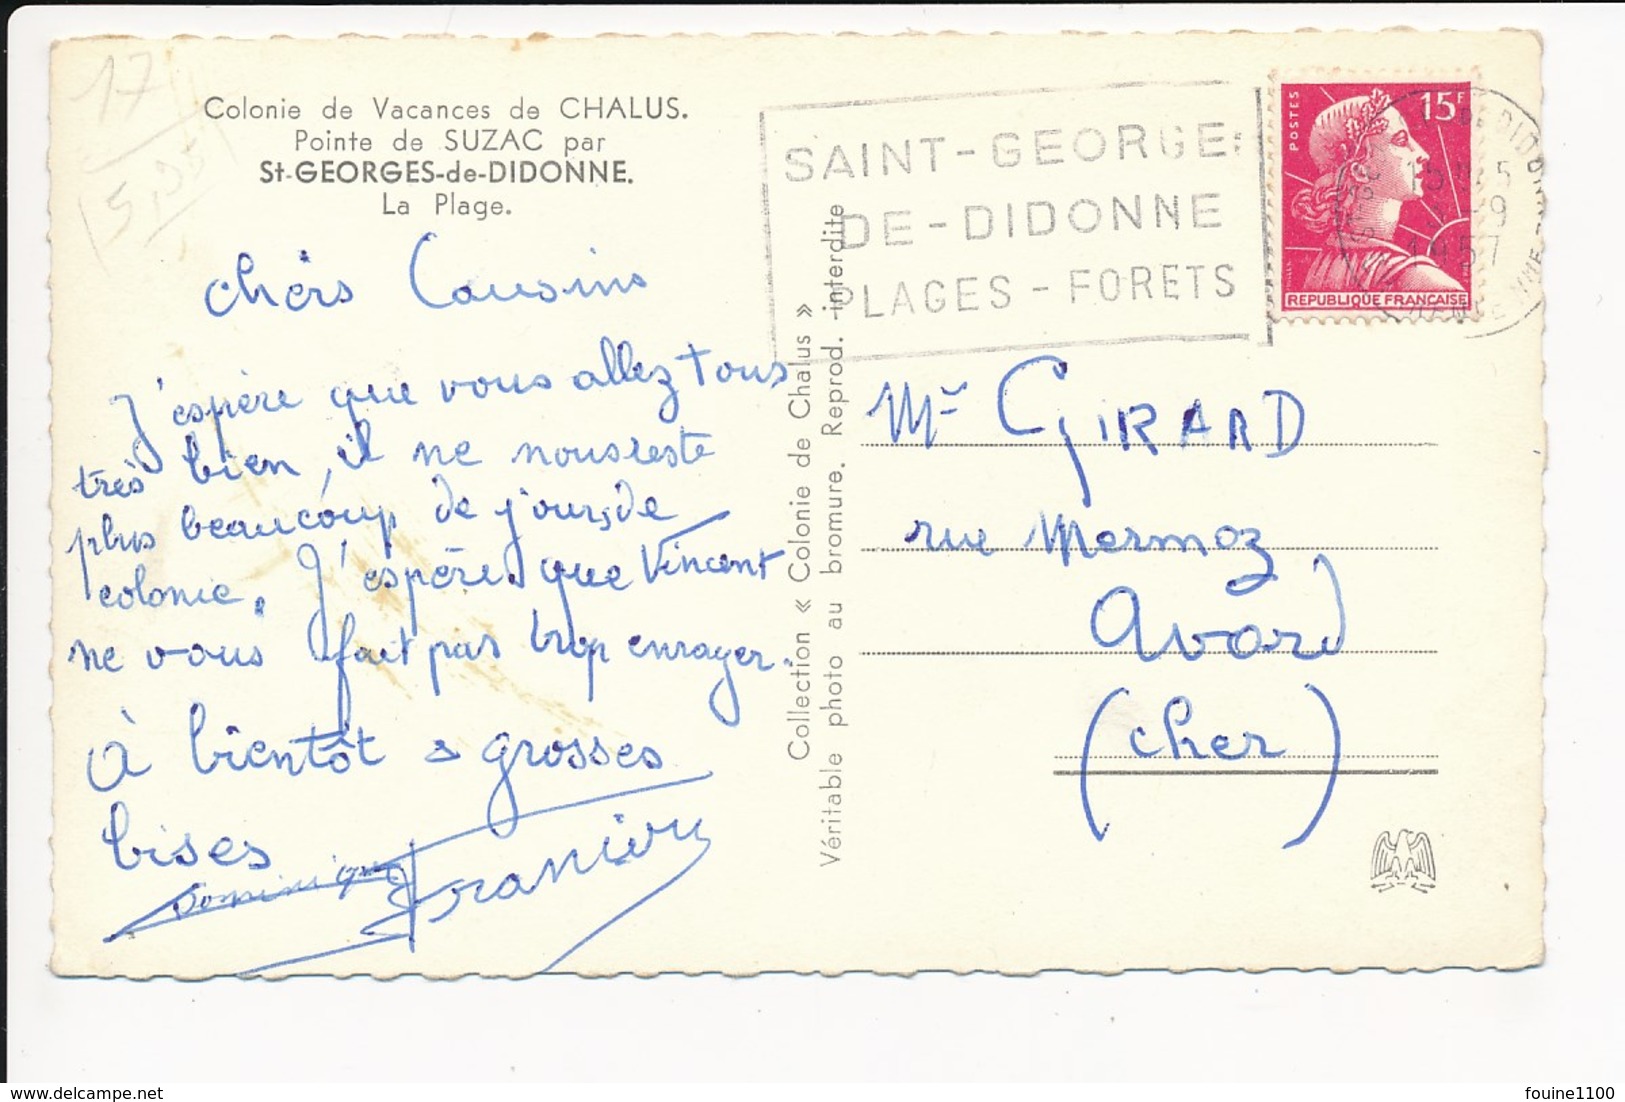 17
5,95
Colonie de Vacances de CHALUS.
Pointe de SUZAC par
St-GEORGES-de-DIDONNE.
La Plage.
chers Cousins
J'espère que vous allez tous
très bien, il ne nous reste
plus beaucoup de jours de
colonie. J'espère que Vincent
ne vous fait pas trop enrager.
à bientôt & grosses
bises
Dominique
Collection « Colonie de Chalus »
Véritable photo au bromure. Reprod. interdite
SAINT-GEORGES
DE-DIDONNE
PLAGES - FORETS
POSTES
15F
REPUBLIQUE FRANÇAISE
DE DIDONNE
1957
Mr GIRARD
rue Mermoz
Avord
(cher)
delcampe.net
fouine1100